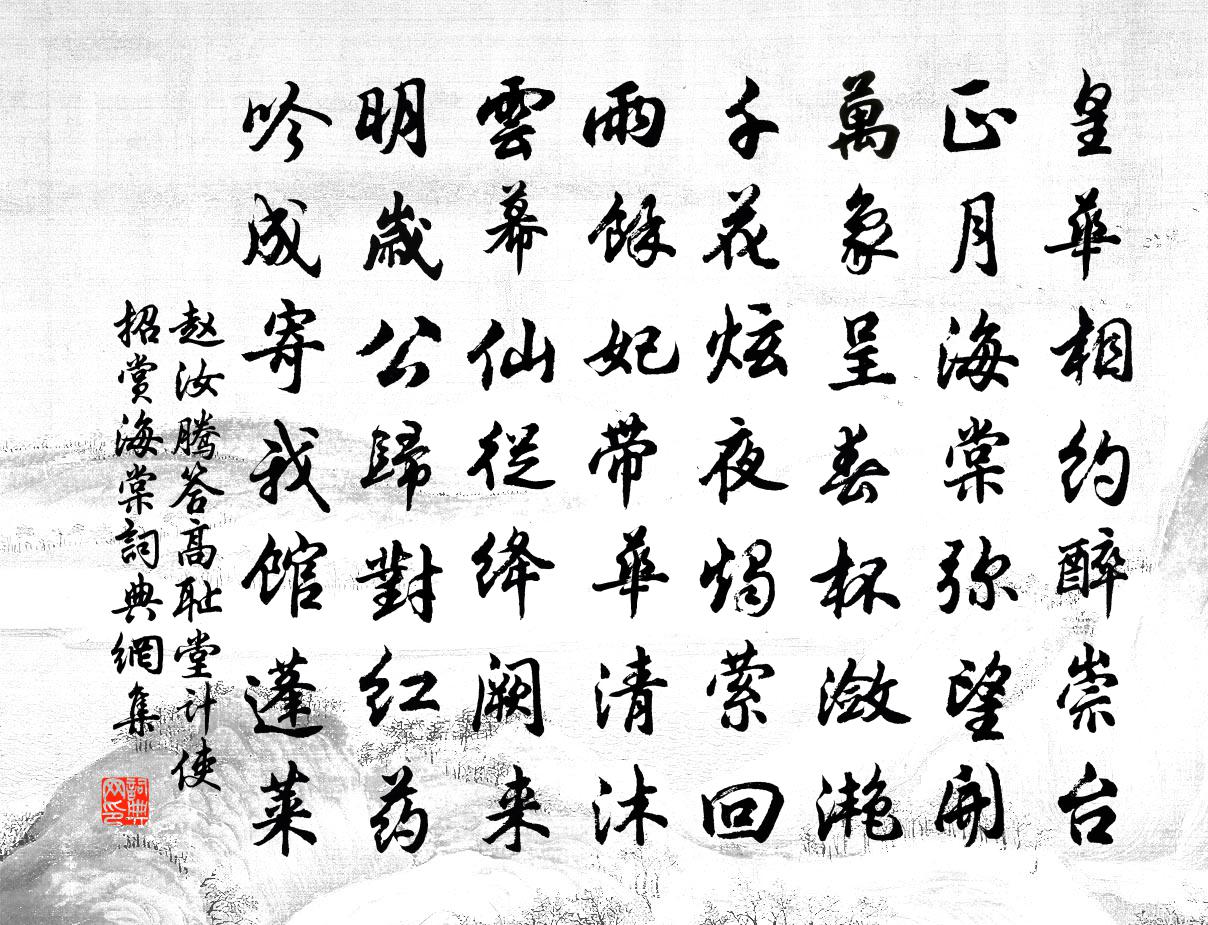 皇華相約醉崇台
正月海棠弥望開
萬象呈春杯瀲灧
千花炫夜燭萦回
雨餘妃帶華清沐
雲幕仙從绛阙来
明歲公歸對红药
吟成寄我館蓬莱
赵汝腾答高耻堂計使
招赏海棠詞典網集
詞典
网印